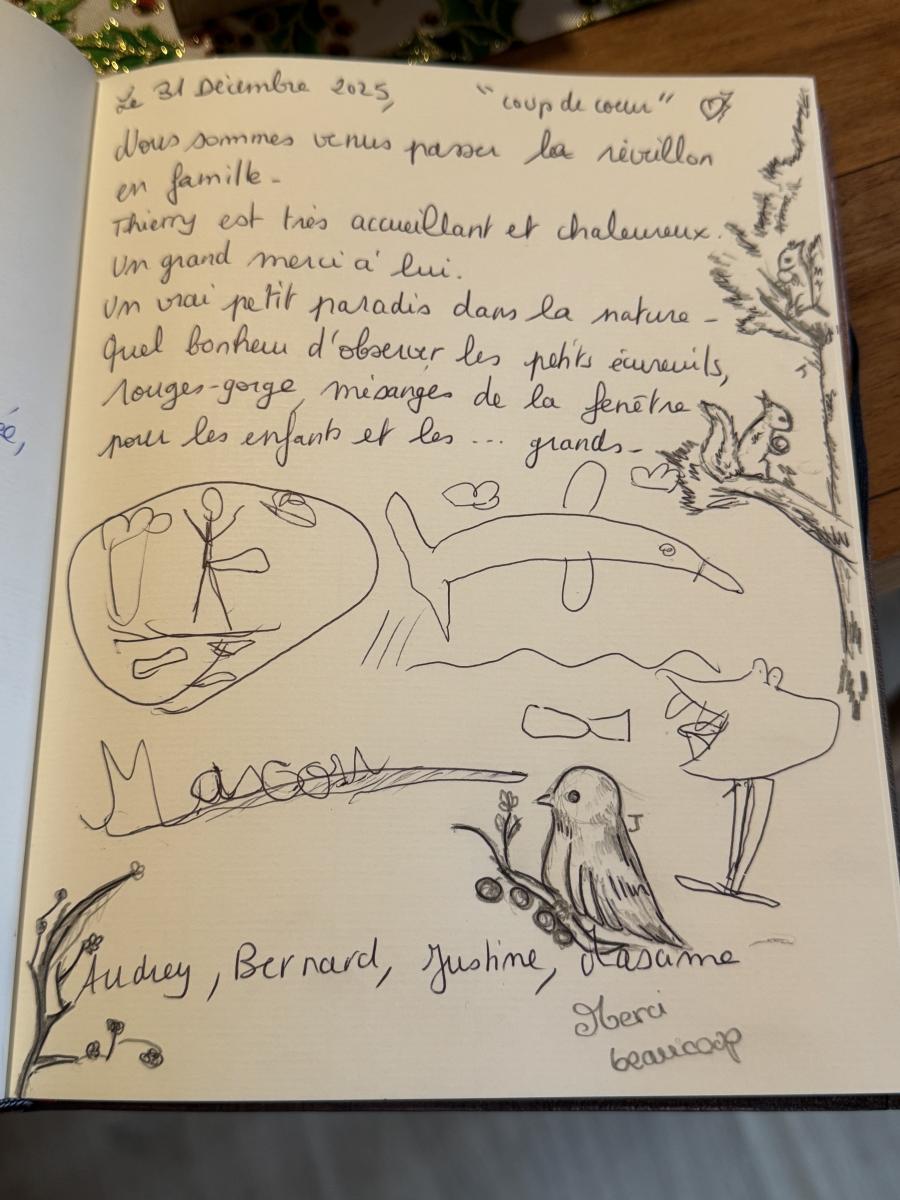 Le 31 Décembre 2025, "coup de coeur"
Nous sommes venus passer la réveillon
en famille -
Thierry est très accueillant et chaleureux.
Un grand merci à lui.
Un vrai petit paradis dans la nature -
Quel bonheur d'observer les petits écureuils,
rouges-gorge, mésanges de la fenêtre
pour les enfants et les ... grands -
Audrey, Bernard, Justine,
Merci
beaucoop